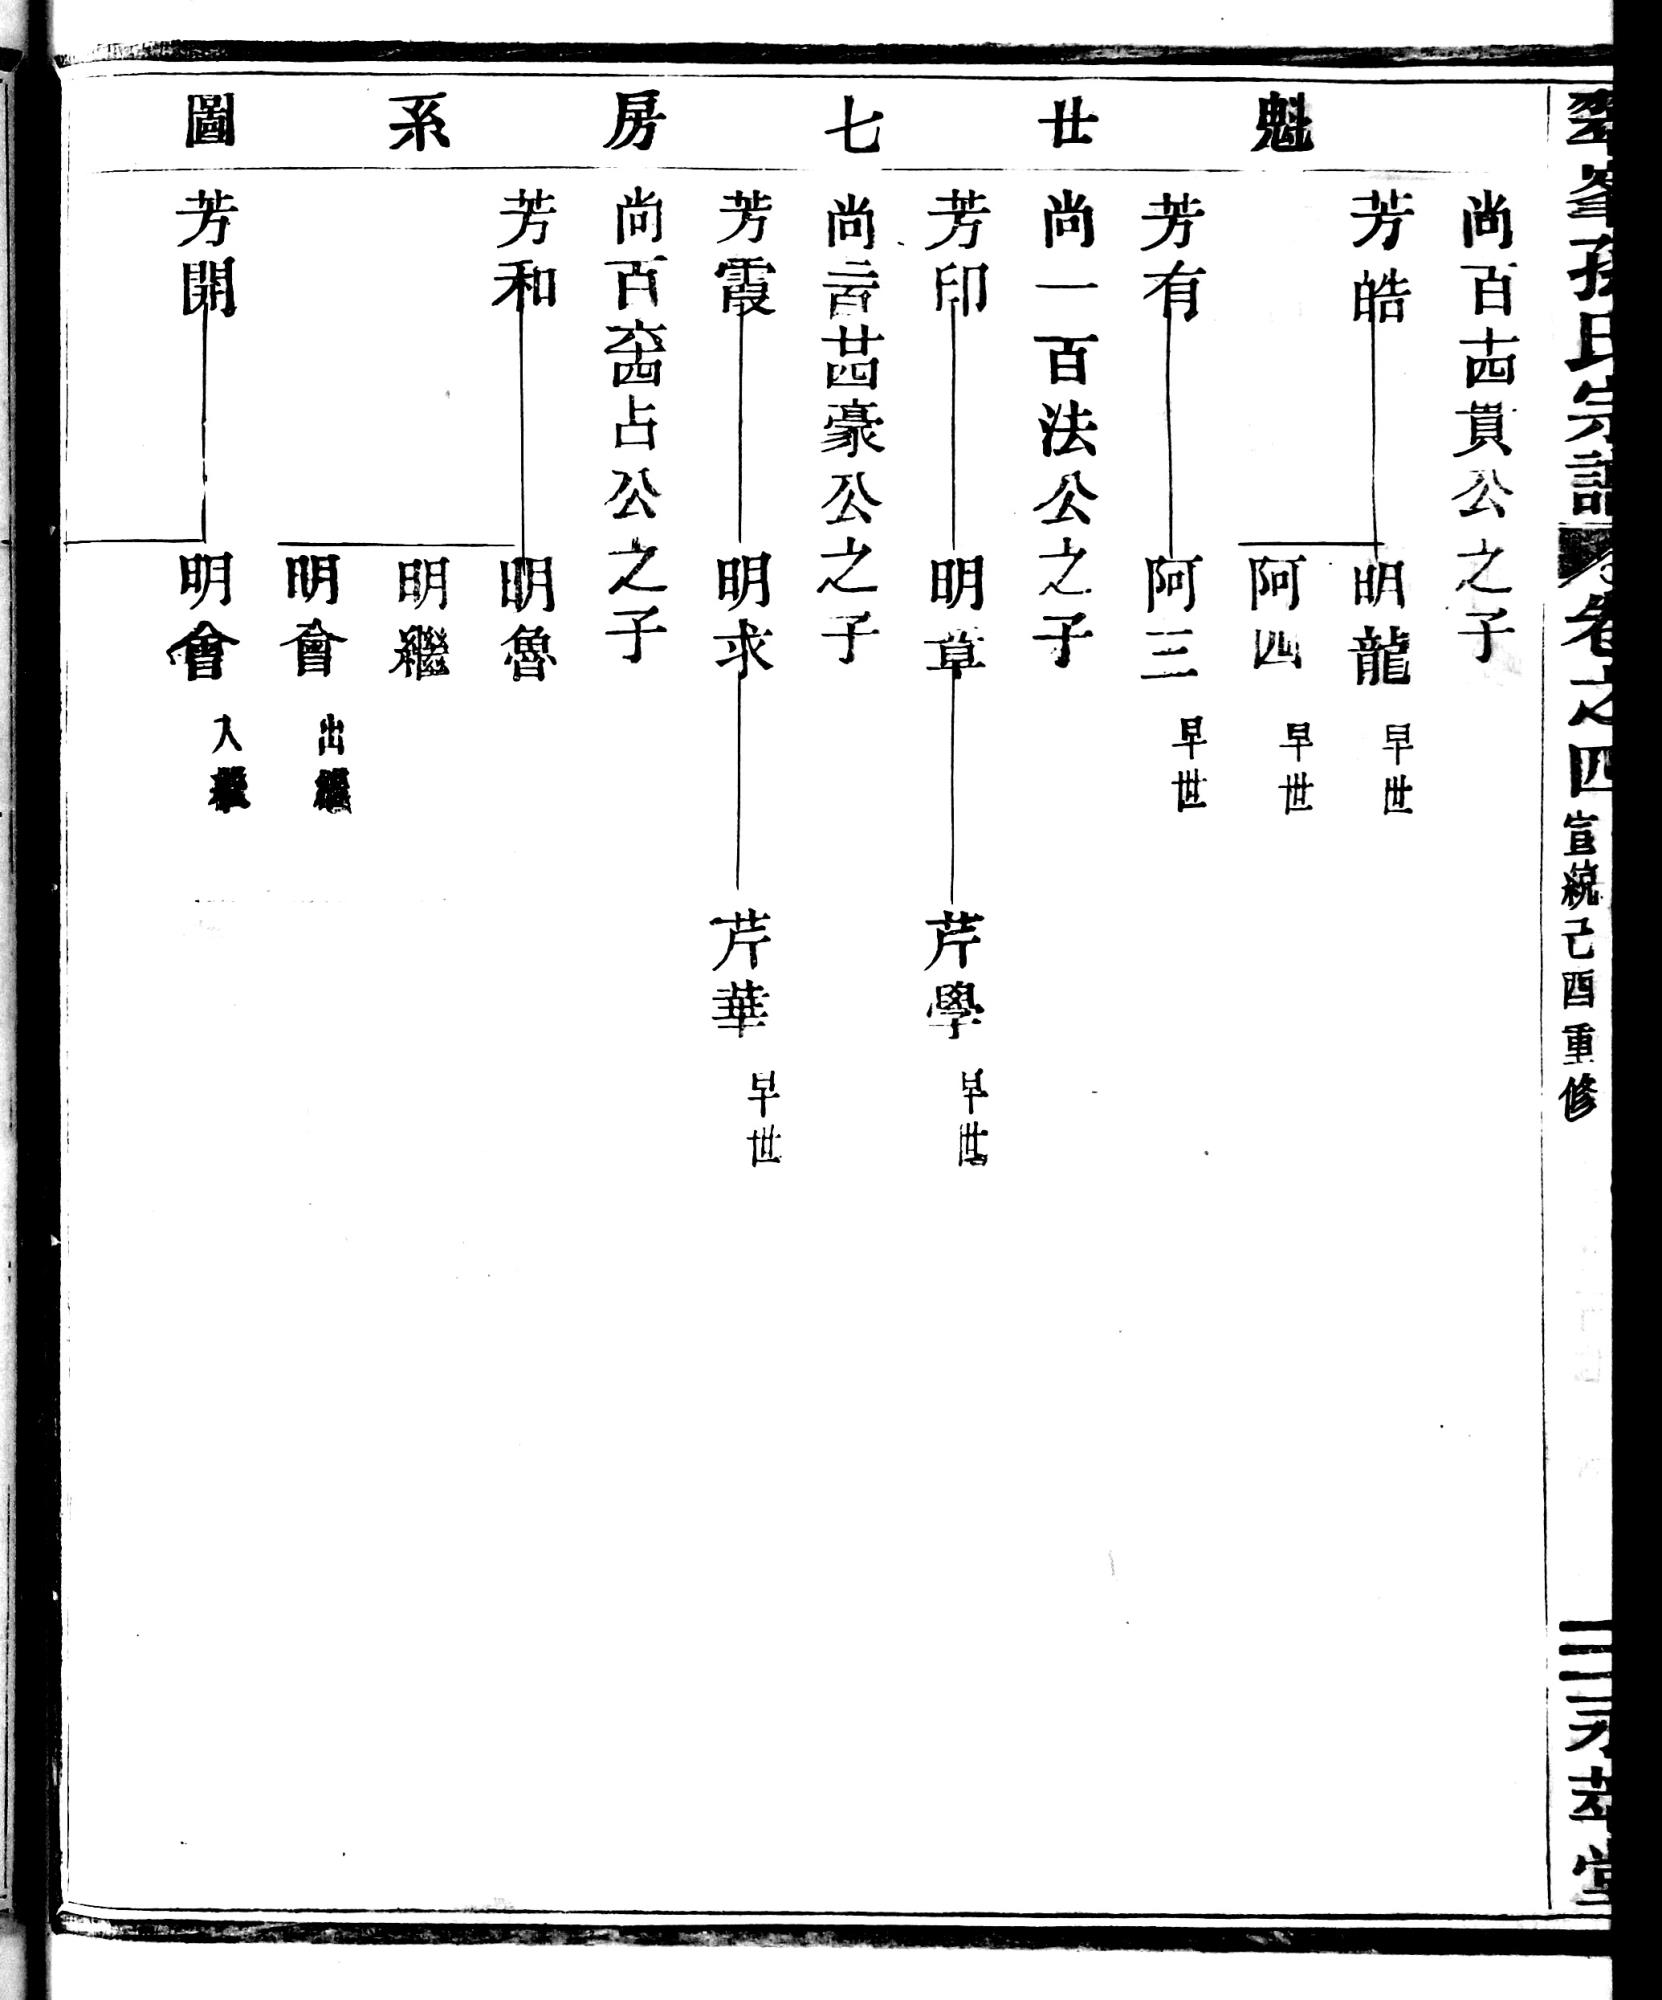 翠峯孫氏宗譜
卷之四
宣統己酉重修
三
永萃堂
魁廿七房系圖
尚百十四貫公之子
芳皓
明龍 早世
阿四 早世
芳有
阿三 早世
尚一百法公之子
芳印
明章
芹學 早世
尚二百廿四豪公之子
芳霞
明求
芹華 早世
尚百六十四占公之子
芳和
明魯
明繼
明會 出繼
芳開
明會 入繼